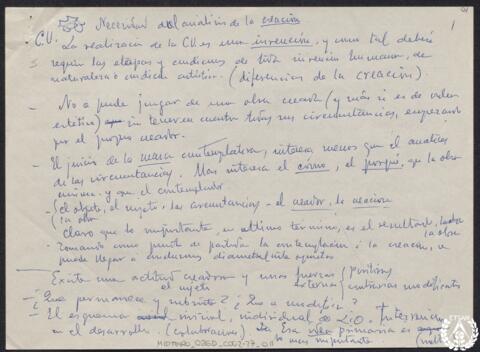 Necesidad del análisis de la creación
1
C.U. La realización de la C.U. es una invención, y como tal deberá
seguir las etapas y condiciones de toda invención humana, de
naturaleza o condición artística. (diferencias de la creación).
- No se puede juzgar de una obra creada (y más si es de orden
estético) sin tener en cuenta todas sus circunstancias, empezando
por el propio creador.
- El juicio de la mera contemplación, interesa menos que el análisis
de las circunstancias. Más interesa el cómo, el porqué, que la obra
misma y que el contemplador
- El objeto, el sujeto, las circunstancias - el creador, la creación
la obra
Claro que lo importante, en último término, es el resultado, la obra
- Tomando como punto de partida la contemplación o la creación, se
la obra
puede llegar a conclusiones diametralmente opuestas
- Existe una actitud creadora y unas fuerzas positivas
el sujeto externas contrarias modificables
- ¿Qué permanece y subsiste? ¿Qué se modifica?
- El esquema inicial, individual de L.O. Intervención
en el desarrollo (colaboradores). La idea primaria es
lo más importante
MIDTMRO_026D_C002-77_011